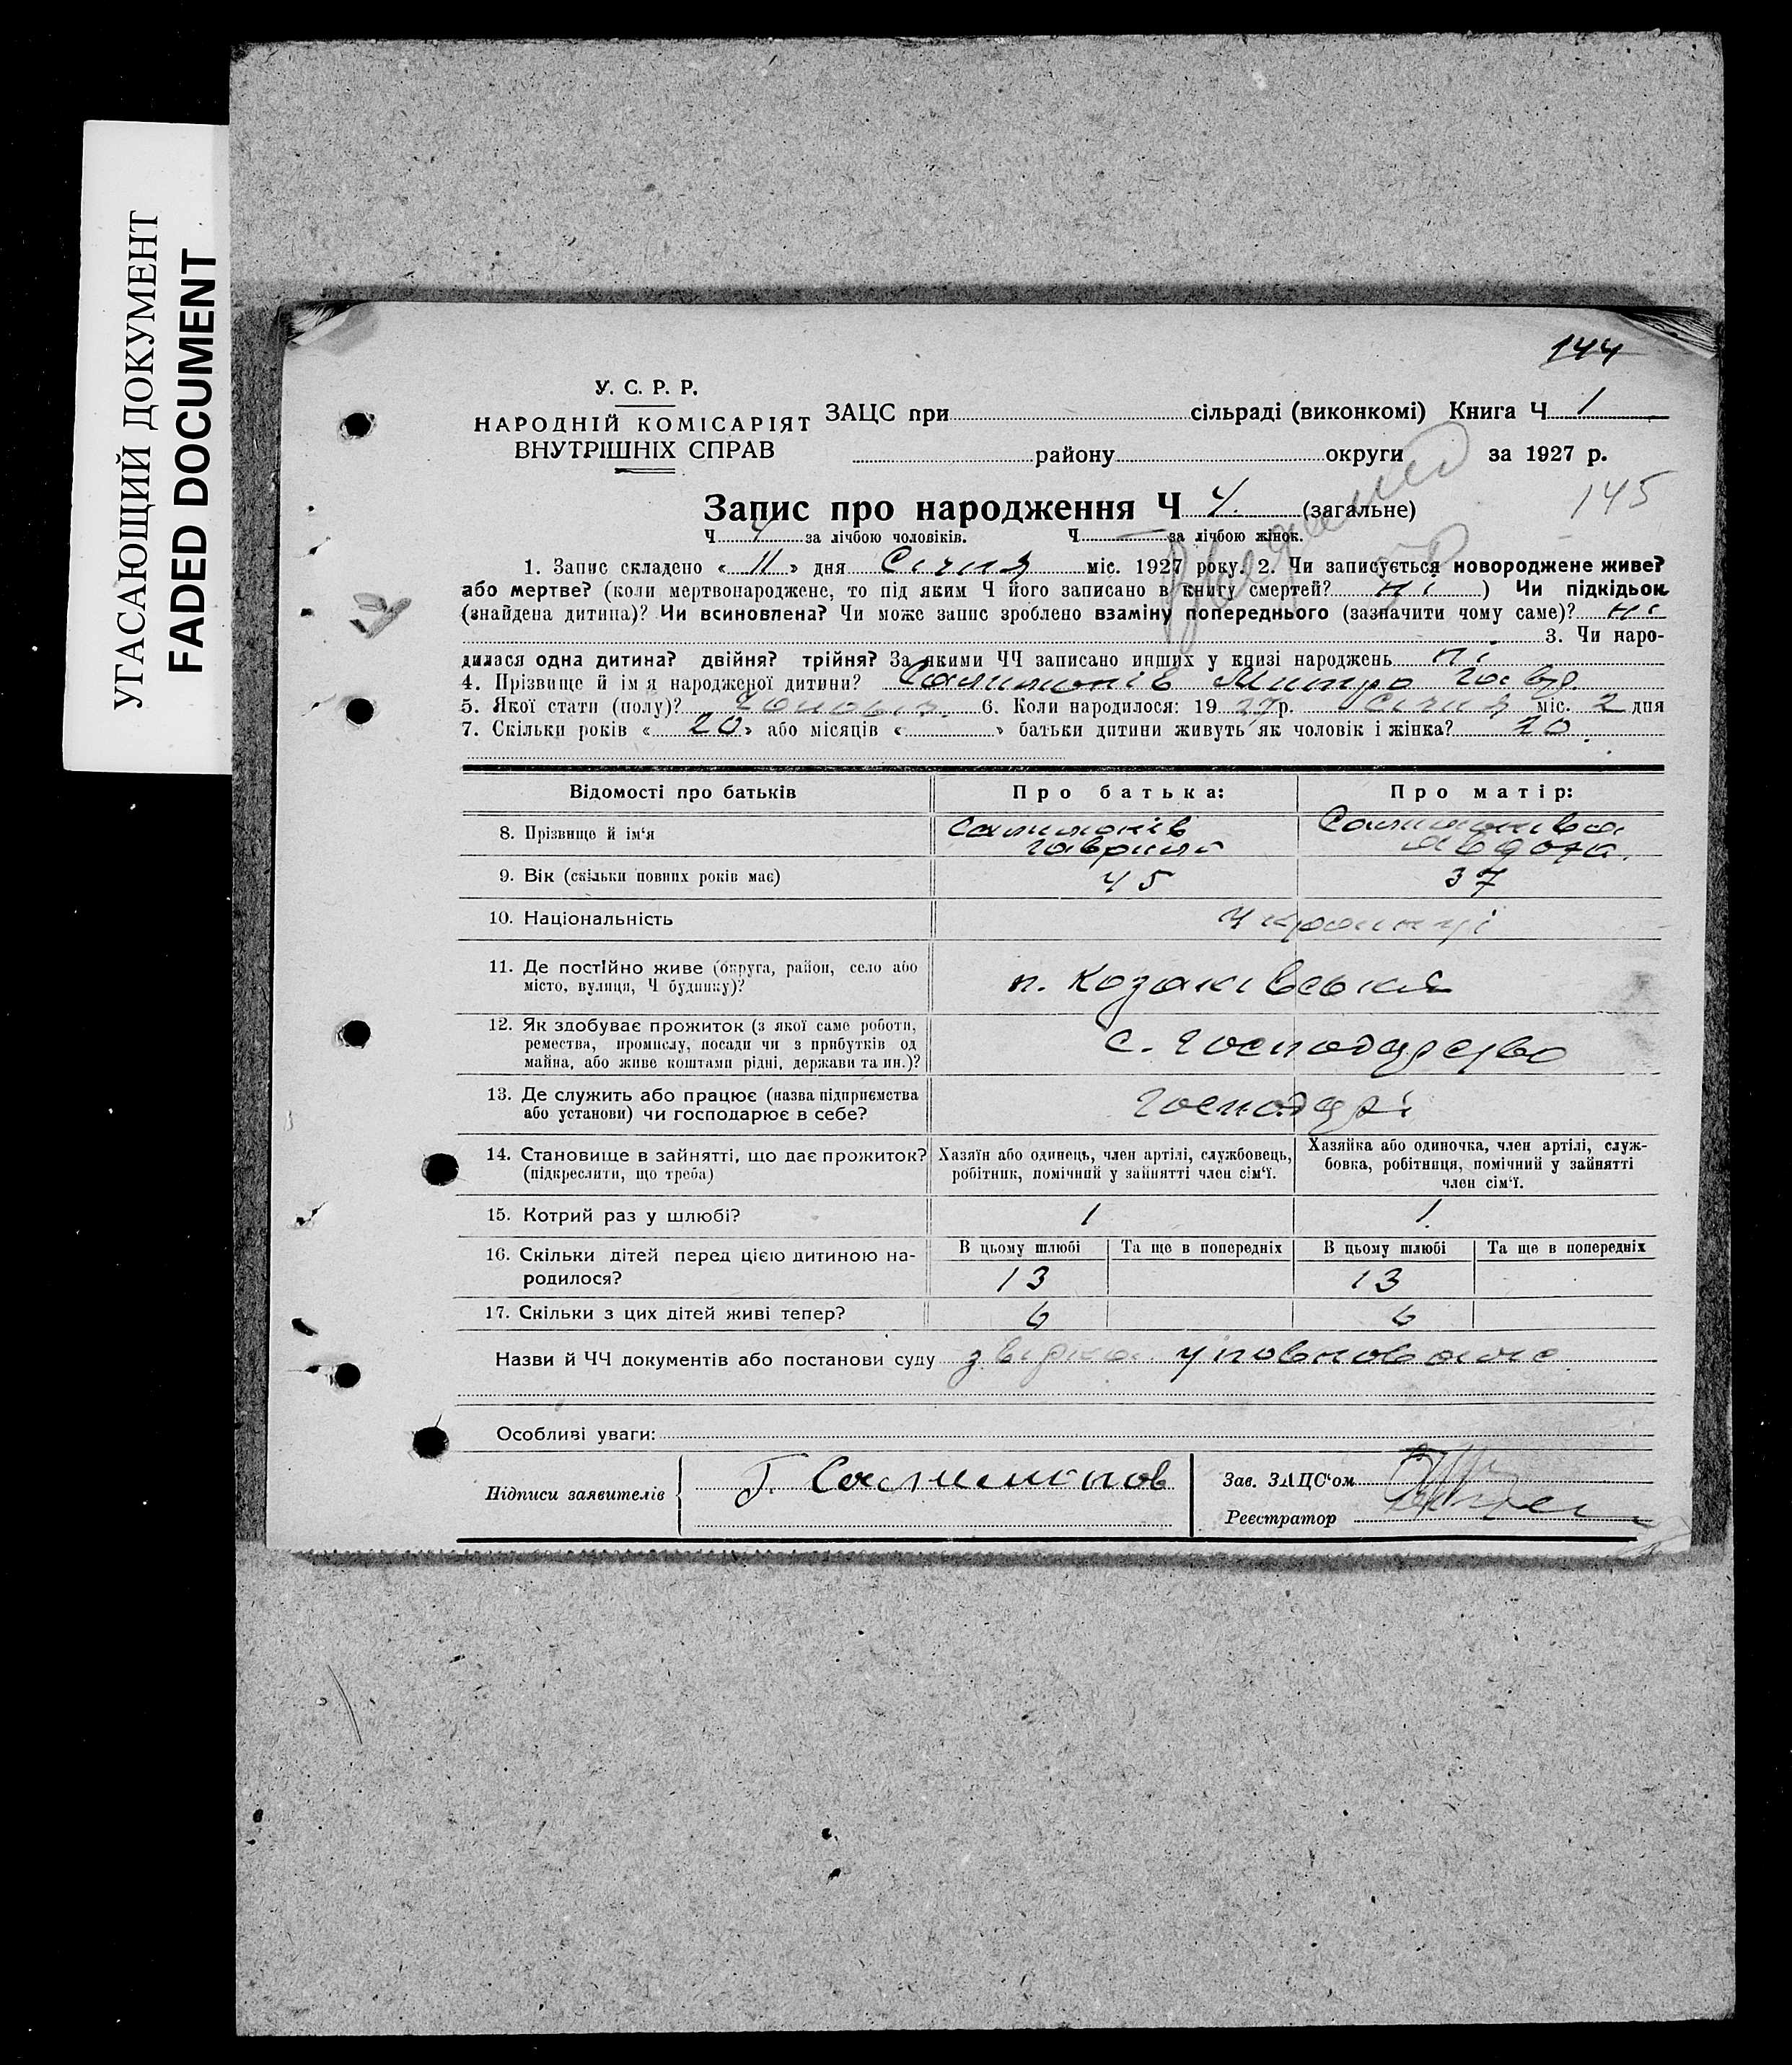 УГАСАЮЩИЙ ДОКУМЕНТ
FADED DOCUMENT
144
У. С. Р. Р.
НАРОДНІЙ КОМІСАРІЯТ
ВНУТРІШНІХ СПРАВ
ЗАЦС при сільраді (виконкомі) Книга Ч 1
району округи за 1927 р.
145
Запис про народження Ч 4. (загальне)
Ч 4 за лічбою чоловіків. Ч — за лічбою жінок.
1. Запис складено « 11 » дня Січня міс. 1927 року. 2. Чи записується новороджене живе?
або мертве? (коли мертвонароджене, то під яким Ч його записано в книгу смертей? ні ) Чи підкідьок
(знайдена дитина)? Чи всиновлена? Чи може запис зроблено взаміну попереднього (зазначити чому саме)? ні
3. Чи наро-
дилася одна дитина? двійня? трійня? За якими ЧЧ записано инших у книзі народжень ні
4. Прізвище й ім'я народженої дитини? Салимонів Митро Гавр.
5. Якої стати (полу)? 6. Коли народилося: 19 27 р. Січня міс. 2 дня
7. Скільки років « 20 » або місяців « » батьки дитини живуть як чоловік і жінка? 20
Відомості про батьків Про батька: Про матір:
8. Прізвище й ім'я Салимонів Гаврило Салимонівна Явдоха.
9. Вік (скільки повних років має) 45 37
10. Національність Українці
11. Де постійно живе (округа, район, село або
місто, вулиця, Ч будинку)? п. Козаківська
12. Як здобуває прожиток (з якої саме роботи,
ремества, промислу, посади чи з прибутків од
майна, або живе коштами рідні, держави та ин.)? с. господарство
13. Де служить або працює (назва підприємства
або установи) чи господарює в себе? господарі
14. Становище в зайнятті, що дає прожиток?
(підкреслити, що треба)
Хазяїн або одинець, член артілі, службовець,
робітник, помічний у зайнятті член сім'ї.
Хазяйка або одиночка, член артілі, служ-
бовка, робітниця, помічний у зайнятті
член сім'ї.
15. Котрий раз у шлюбі? 1 1
16. Скільки дітей перед цією дитиною на-
родилося?
В цьому шлюбі Та ще в попередніх В цьому шлюбі Та ще в попередніх
13 13
17. Скільки з цих дітей живі тепер? 6 6
Назви й ЧЧ документів або постанови суду
Особливі уваги:
Підписи заявителів Г. Салимонов
Зав. ЗАЦС'ом
Реєстратор